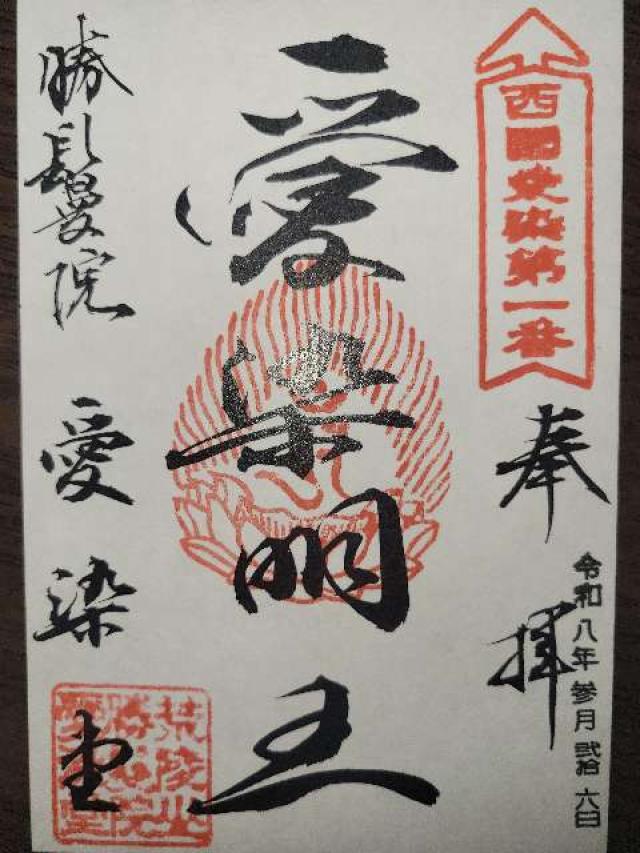 西國愛染第一番
奉拝
令和八年参月弐拾六日
愛染明王
勝鬘院
愛染堂
荒陵山
勝鬘院
愛染堂